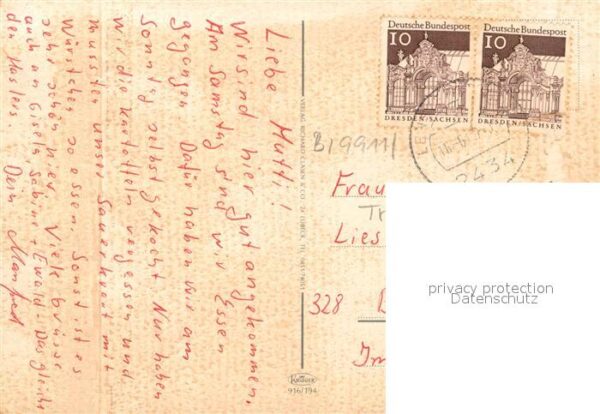 Liebe Mutti!
Wir sind hier gut angekommen.
Am Samstag sind wir Essen
gegangen. Dafür haben wir am
Sonntag selbst gekocht. Nur haben
wir die Kartoffeln vergessen und
mussten unser Sauerkraut mit
Würstchen so essen. Sonst ist es
sehr schön hier. Viele Grüsse
auch an Gisela, Sabine + Ewald. Das gleiche
Dein Manfred
VERLAG
Krüger
916/194
Deutsche Bundespost
10
DRESDEN/SACHSEN
Deutsche Bundespost
10
DRESDEN/SACHSEN
2434
B19911/
Frau
Lies
328
Im
privacy protection
Datenschutz